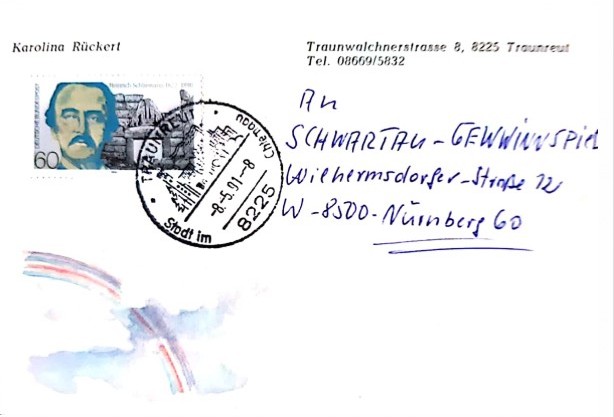 Karolina Rückert
Traunwalchnerstrasse 8, 8225 Traunreut
Tel. 08669/5832
DEUTSCHE BUNDESPOST
Heinrich Schliemann
60
TRAUNREUT
Chiemgau
-8.5.91-8
8225
Stadt im
An
SCHWARTAU-GEWINNSPIEL
Wilhermsdorfer-Straße 12
W-8500-Nürnberg 60